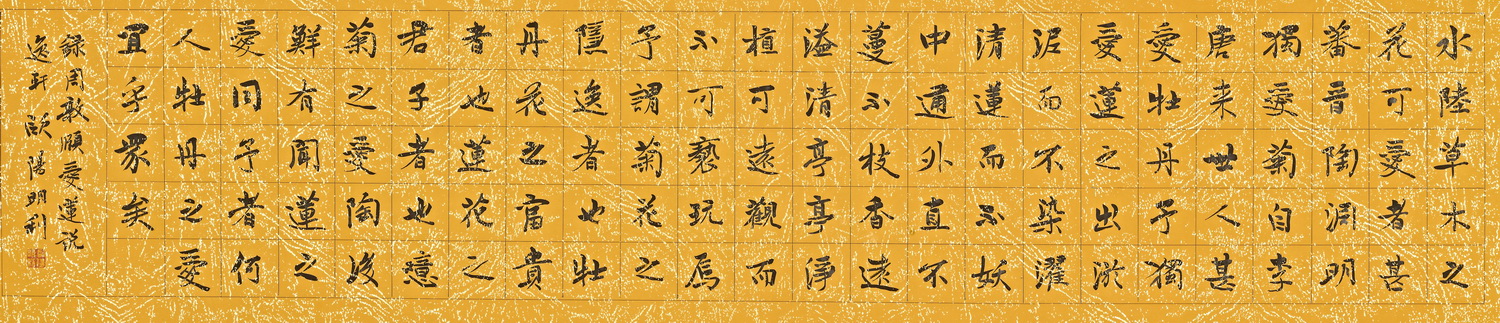 水陸草木之
花可愛者甚
蕃晉陶淵明
獨愛菊自李
唐来世人甚
愛牡丹予獨
愛蓮之出淤
泥而不染濯
清蓮而不妖
中通外直不
蔓不枝香遠
溢清亭亭淨
植可遠觀而
不可褻玩焉
予謂菊花之
隱逸者也牡
丹花之富貴
者也蓮花之
君子者也噫
菊之愛陶後
鮮有聞蓮之
愛同予者何
人牡丹之愛
宜乎眾矣
録周敦頤愛蓮说
逸軒 歐陽明利